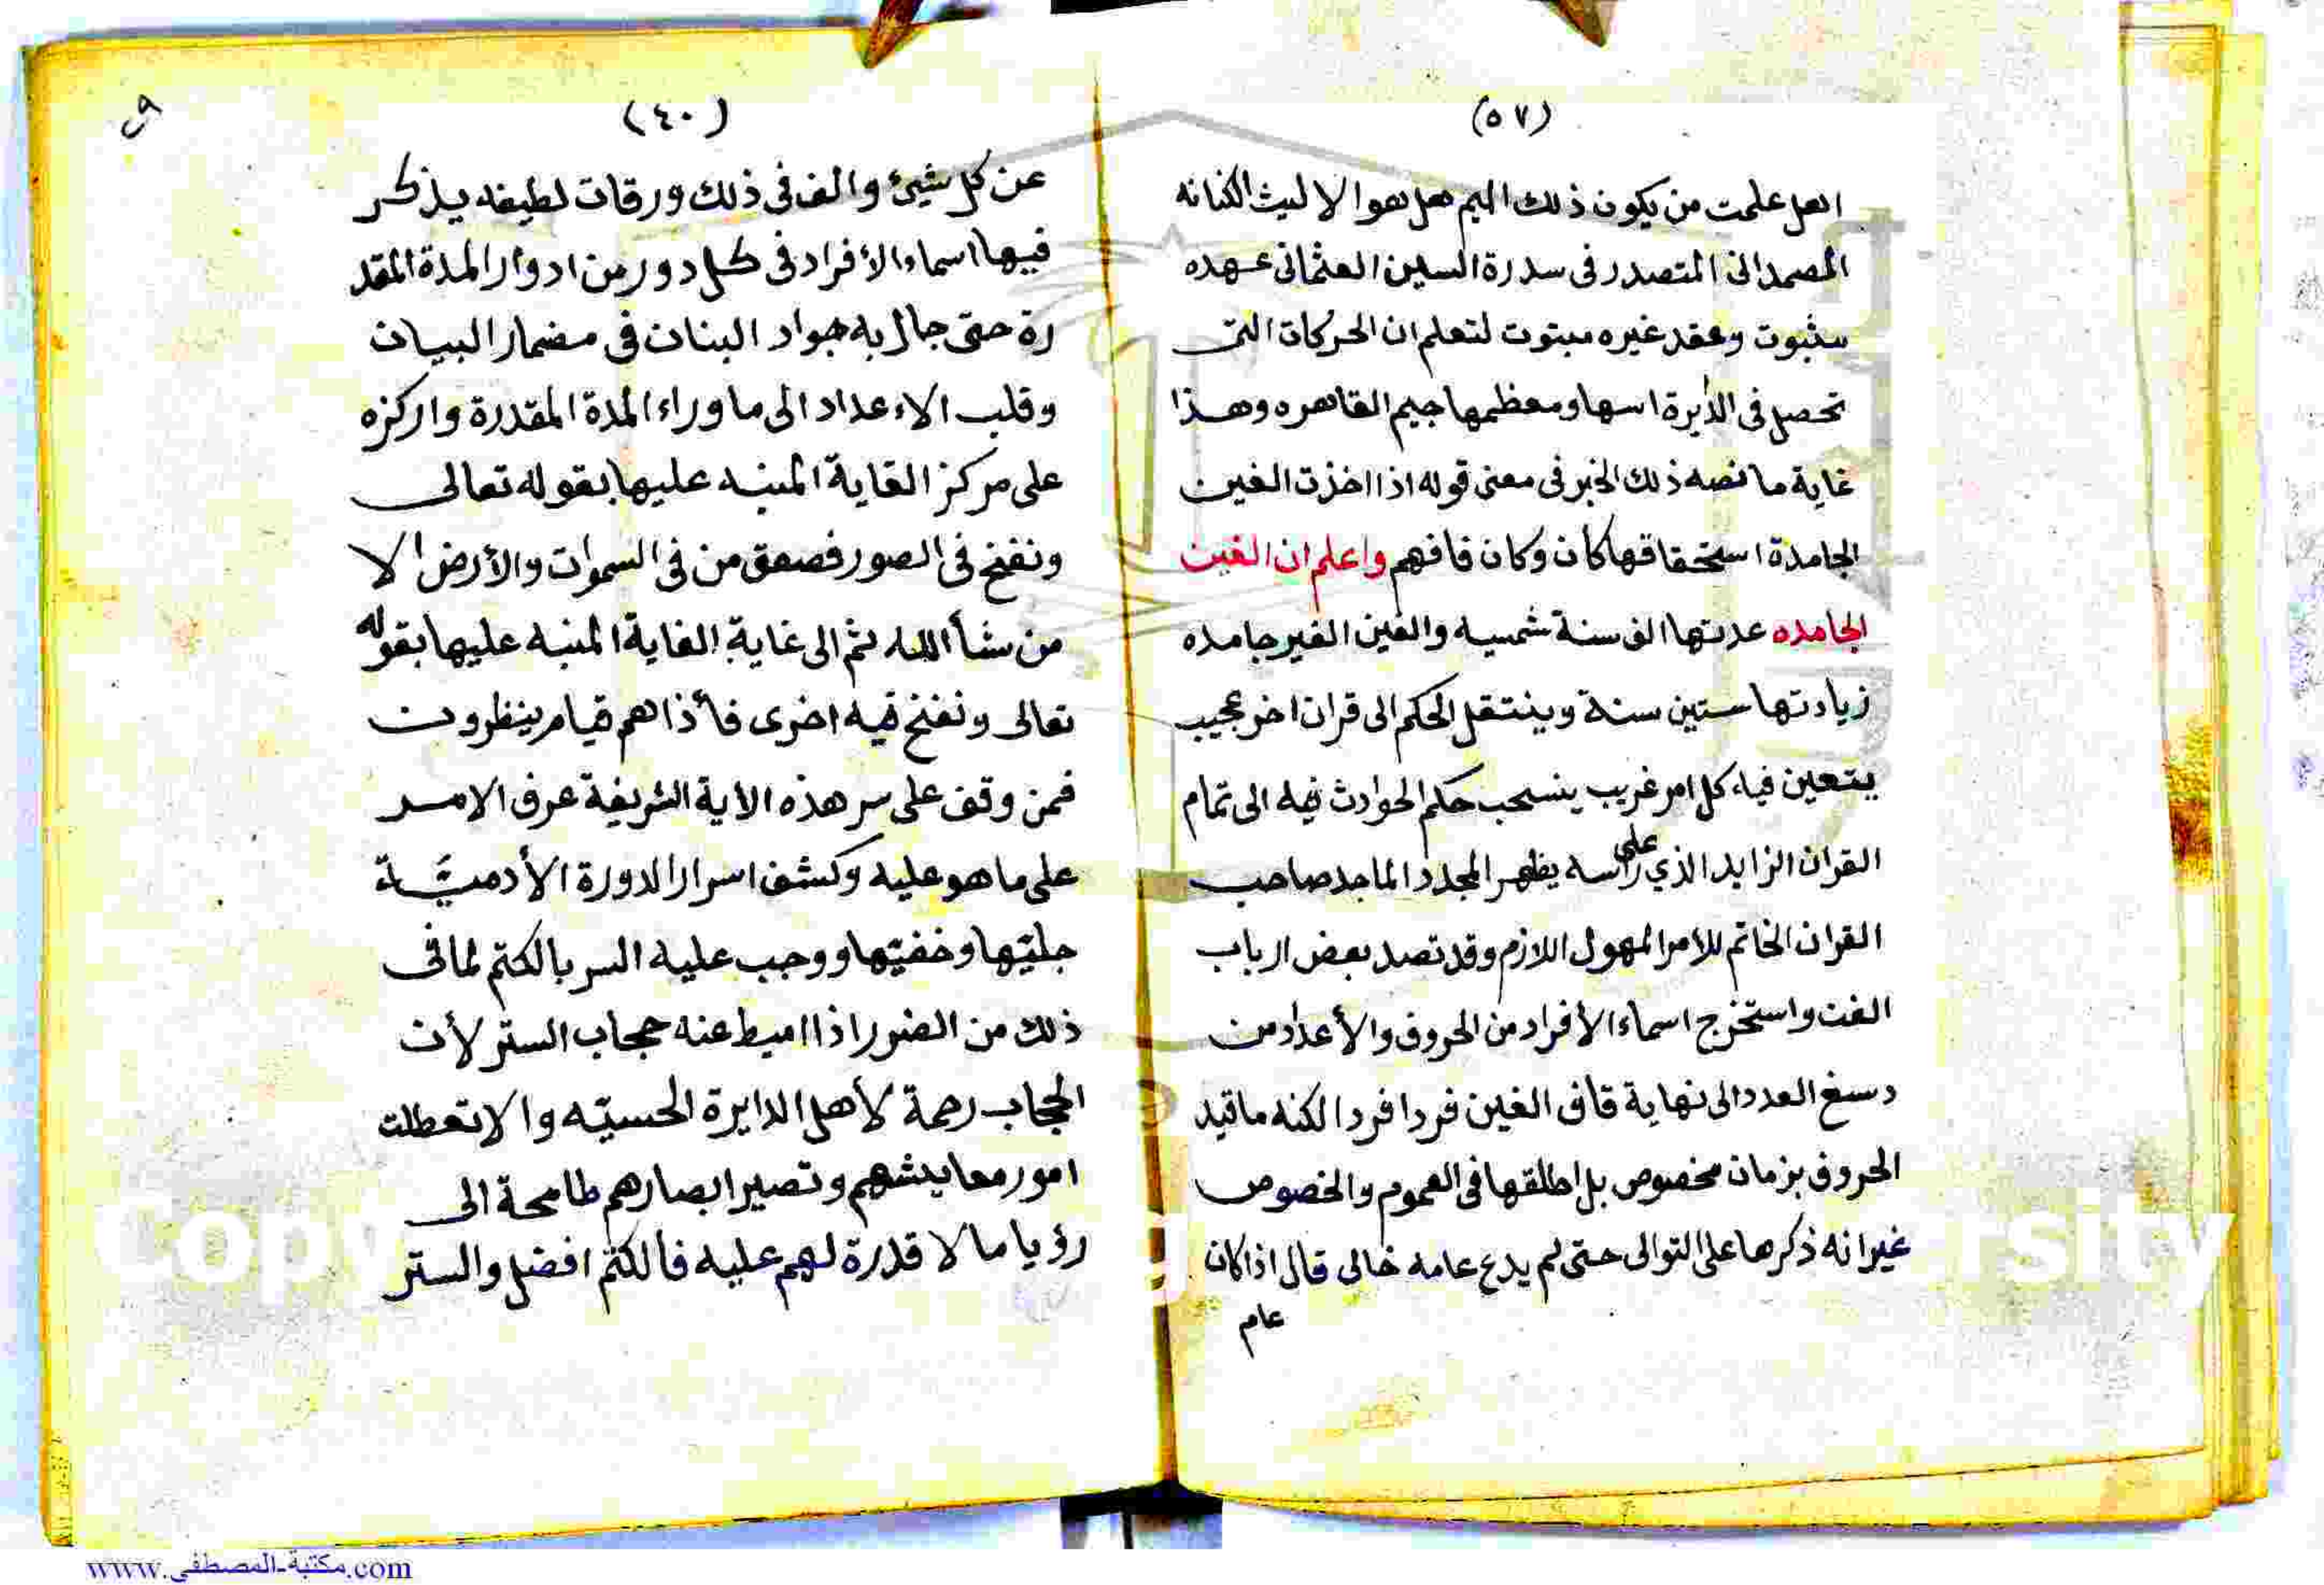 (٥٧)
اهل علمت من يكون ذلك الميم هل هوا لا ليث الكنانه
الصمدانى المتصدر فى سدرة السين العثمانى عهده
مثبوت وعقد غيره مبتوت لتعلم ان الحركات التى
تحصل فى الدايرة اسها ومعظمها جيم القاهره وهذا
غاية ما نصه ذلك الخبر فى معنى قوله اذا اخذت الغين
الجامدة استحقاقها كان وكان فافهم واعلم ان الغين
الجامده عدتها الف سنة شمسيه والغين الغير جامده
زيادتها ستين سنة وينتقل الحكم الى قران اخر عجيب
يتعين فيه كل امر غريب ينسحب حكم الحوادث فيه الى تمام
القران الزايد الذي على راسه يظهر المجدد الماجد صاحب
القران الخاتم للأمر المهول اللازم وقد تصد بعض ارباب
الفن واستخرج اسماء الأفراد من الحروف والأعداد من
العدد الى نهاية قاف الغين فردا فردا لكنه ماقيد
الحروف بزمان مخصوص بل اطلقها فى العموم والخصوص
غيرانه ذكرها على التوالى حتى لم يدع عامه خالى قال اذا كان
عام
(٤٠)
عن كل شيئ والف فى ذلك ورقات لطيفه يذكر
فيها اسماء الأفراد فى كل دور من ادوار المدة المقد
رة حتى جال به جواد البنان فى مضمار البيان
وقلب الاعداد الى ما وراء المدة المقدرة واركزه
على مركز الغاية المنبه عليها بقوله تعالى
ونفخ فى الصور فصعق من فى السموات والأرض الا
من شأ الله ثم الى غاية الغاية المنبه عليها بقوله
تعالى ونفخ فيه اخرى فأذا هم قيام ينظرون
فمن وقف على سر هذه الاية الشريفة عرف الامر
على ما هو عليه وكشف اسرار الدورة الأدميّة
جليّها وخفيّها ووجب عليه السر بالكتم لما فى
ذلك من الضرر اذا اميط عنه حجاب الستر لأن
الحجاب رحمة لأهل الدايرة الحسيّه والا تعطلت
امور معايشهم وتصير ابصارهم طامحة الى
رؤيا ما لا قدرة لهم عليه فألكتم افضل والستر
Copy
rsity
www.مكتبة-المصطفى.com